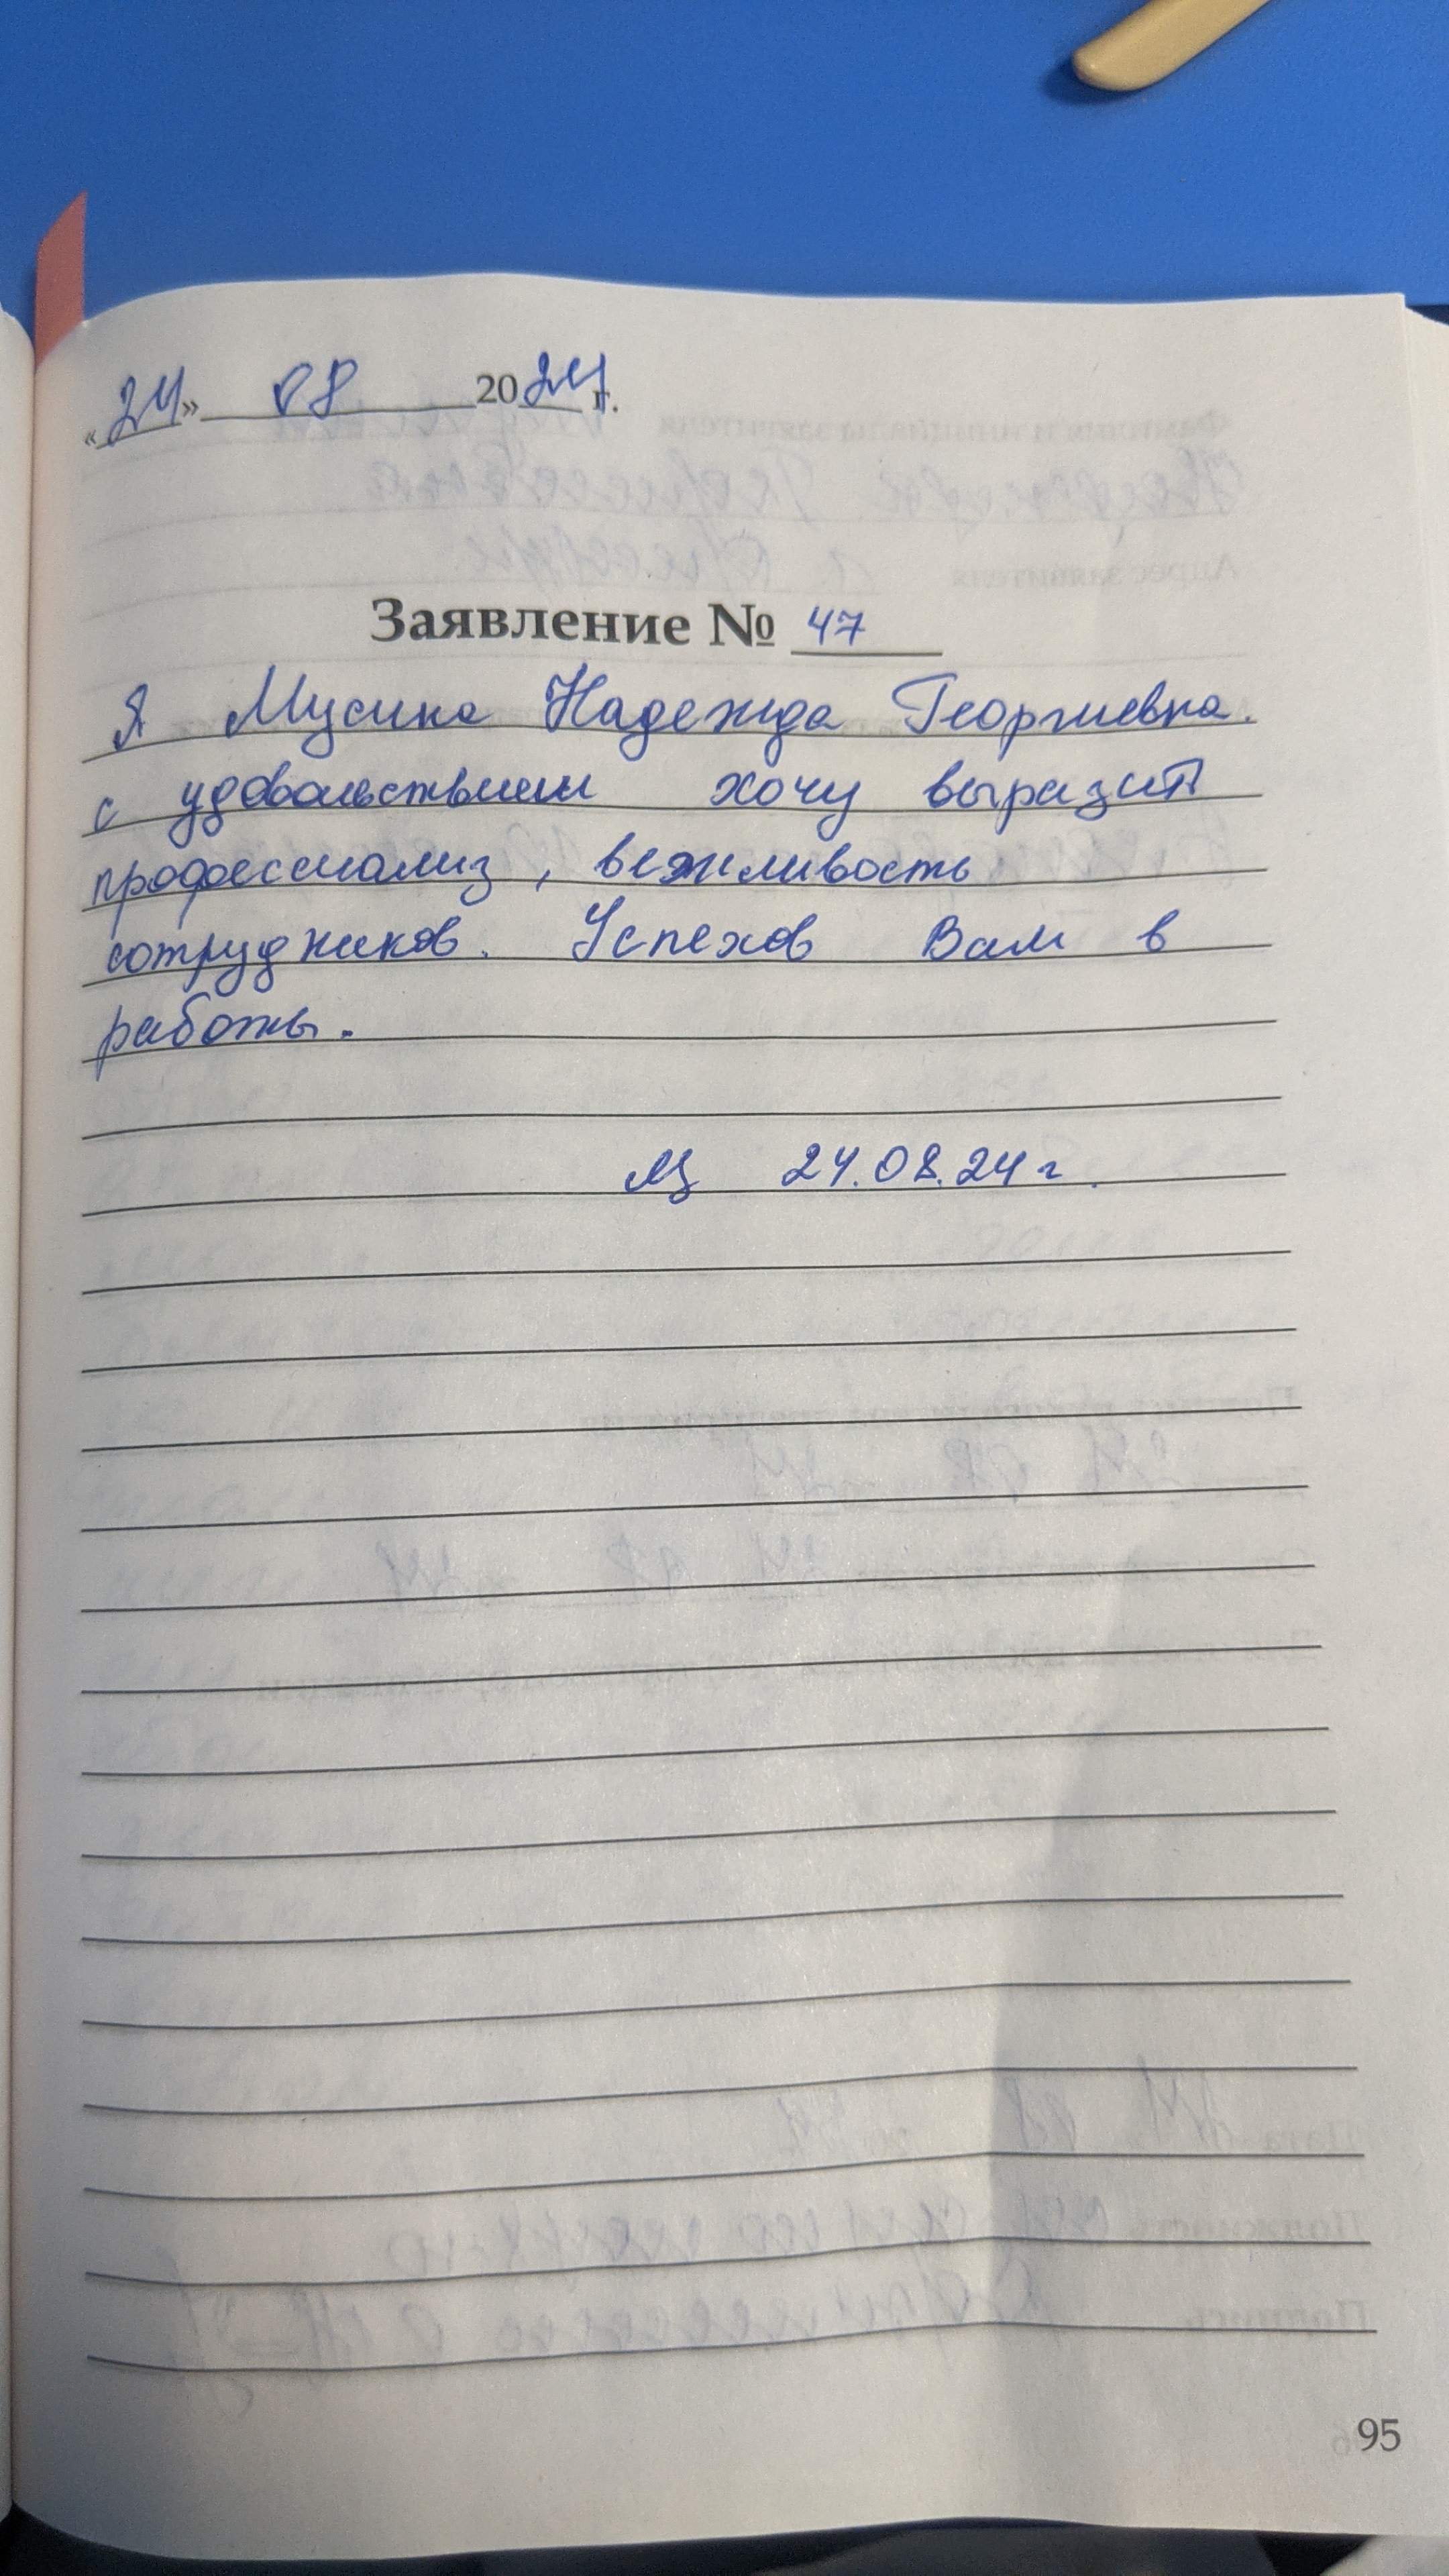 «24» 08 2024 г.
Заявление № 47
Я Мусина Надежда Георгиевна.
с удовольствием хочу выразить
профессиализ, вежливость
сотрудников. Успехов Вам в
работы.
24.08.24 г.
95